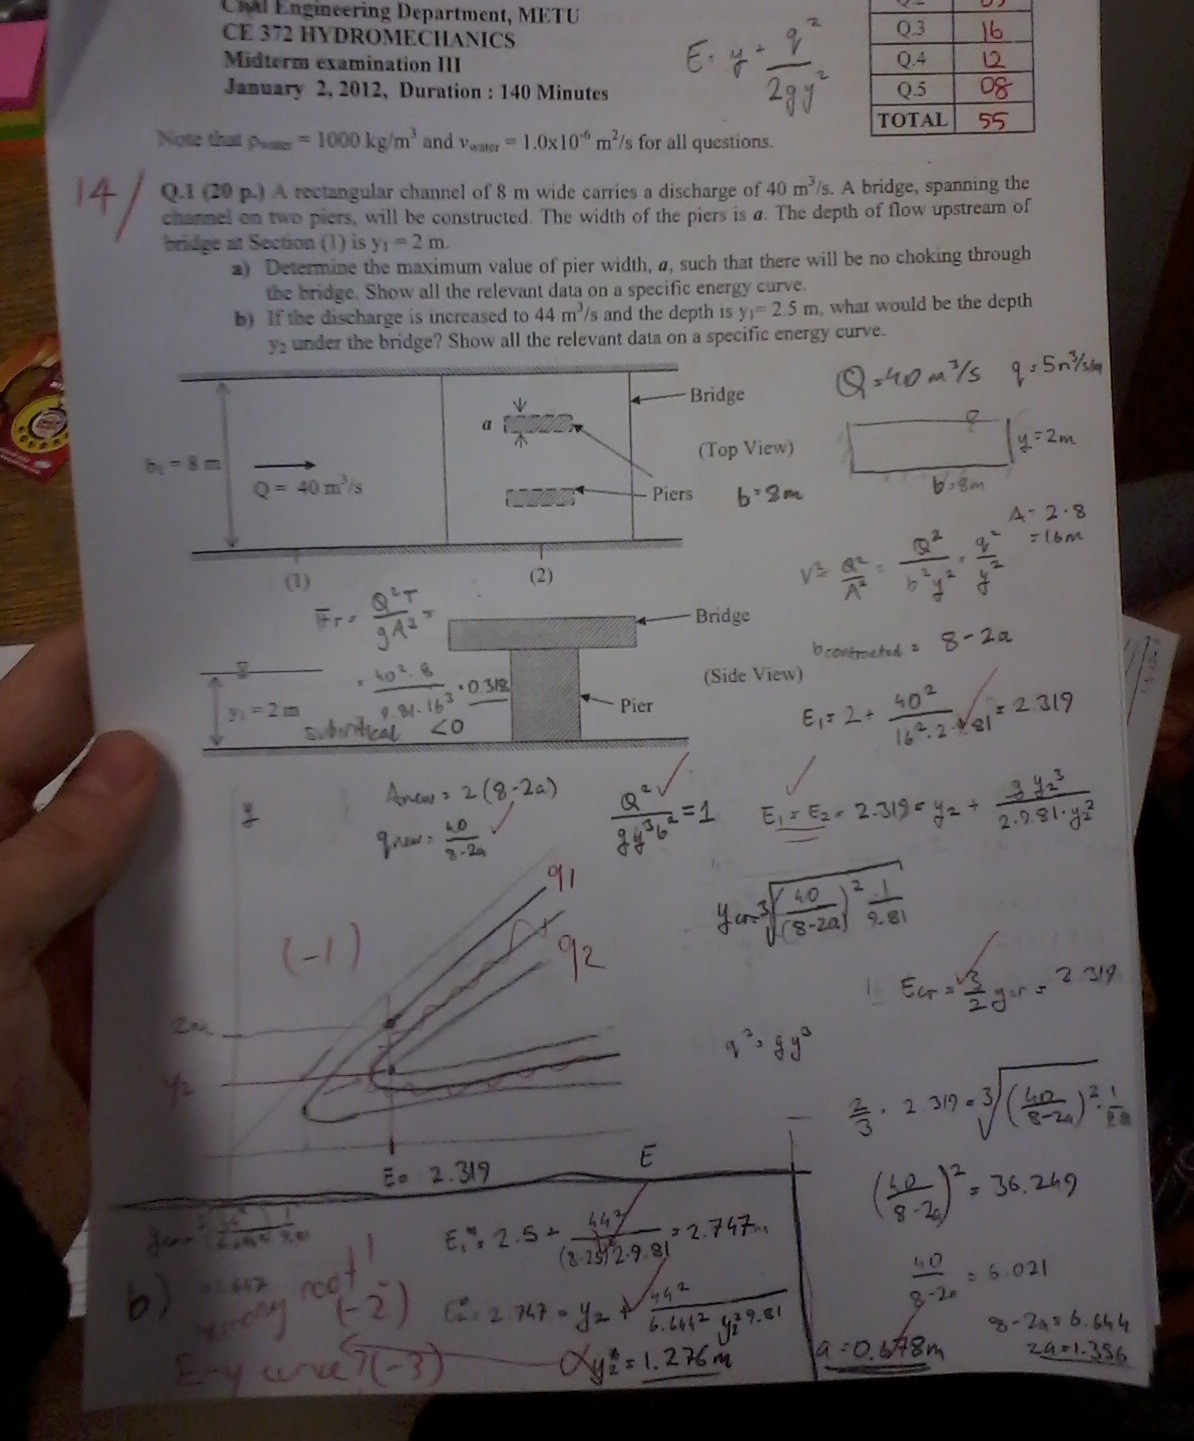 Civil Engineering Department, METU
CE 372 HYDROMECHANICS
Midterm examination III
January 2, 2012, Duration : 140 Minutes
E = y + q²/2gy²
Q.3 16
Q.4 12
Q.5 08
TOTAL 55
Note that ρwater = 1000 kg/m³ and νwater = 1.0x10⁻⁶ m²/s for all questions.
14/
Q.1 (20 p.) A rectangular channel of 8 m wide carries a discharge of 40 m³/s. A bridge, spanning the
channel on two piers, will be constructed. The width of the piers is a. The depth of flow upstream of
bridge at Section (1) is y₁ = 2 m.
a) Determine the maximum value of pier width, a, such that there will be no choking through
the bridge. Show all the relevant data on a specific energy curve.
b) If the discharge is increased to 44 m³/s and the depth is y₁= 2.5 m, what would be the depth
y₂ under the bridge? Show all the relevant data on a specific energy curve.
Q=40 m³/s q=5m³/s/m
Bridge
a
(Top View)
y=2m
b=8m
b₁ = 8 m
Q = 40 m³/s
Piers
b=8m
A=2·8
=16m
V²= Q²/A² = Q²/b²y² = q²/y²
(1)
(2)
Fr = Q²T/gA³ =
= 40²·8/9.81·16³ = 0.318
subcritical <0
Bridge
(Side View)
y₁ = 2 m
Pier
bcontracted = 8-2a
E₁= 2+ 40²/16²·2·9.81 = 2.319
Anew = 2(8-2a)
qnew = 40/8-2a
Q²/gy³b² =1
E₁=E₂= 2.319= y₂ + gy₂³/2·9.81·y₂²
y
q1
q2
(-1)
2m
y₂
E₀ = 2.319
E
ycr=³√(40/(8-2a))² 1/9.81
Ecr = 3/2 ycr = 2.319
q²= gy³
2/3 · 2.319 = ³√(40/8-2a)²·1/9.81
(40/8-2a)² = 36.249
40/8-2a = 6.021
8-2a=6.644
2a=1.356
a=0.678m
b)
E₁*= 2.5 + 44²/(8·2.5)²2·9.81 = 2.747m
E₂*= 2.747 = y₂ + 44²/6.644² y₂² 2·9.81
y₂*=1.276m
wrong root!
(-2)
E-y curve? (-3)